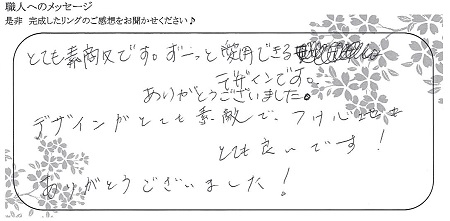 職人へのメッセージ
是非 完成したリングのご感想をお聞かせください♪
とても素敵です。ずーっと愛用できる
デザインです。
ありがとうございました。
デザインがとても素敵で、つけ心地も
とても良いです！
ありがとうございました！